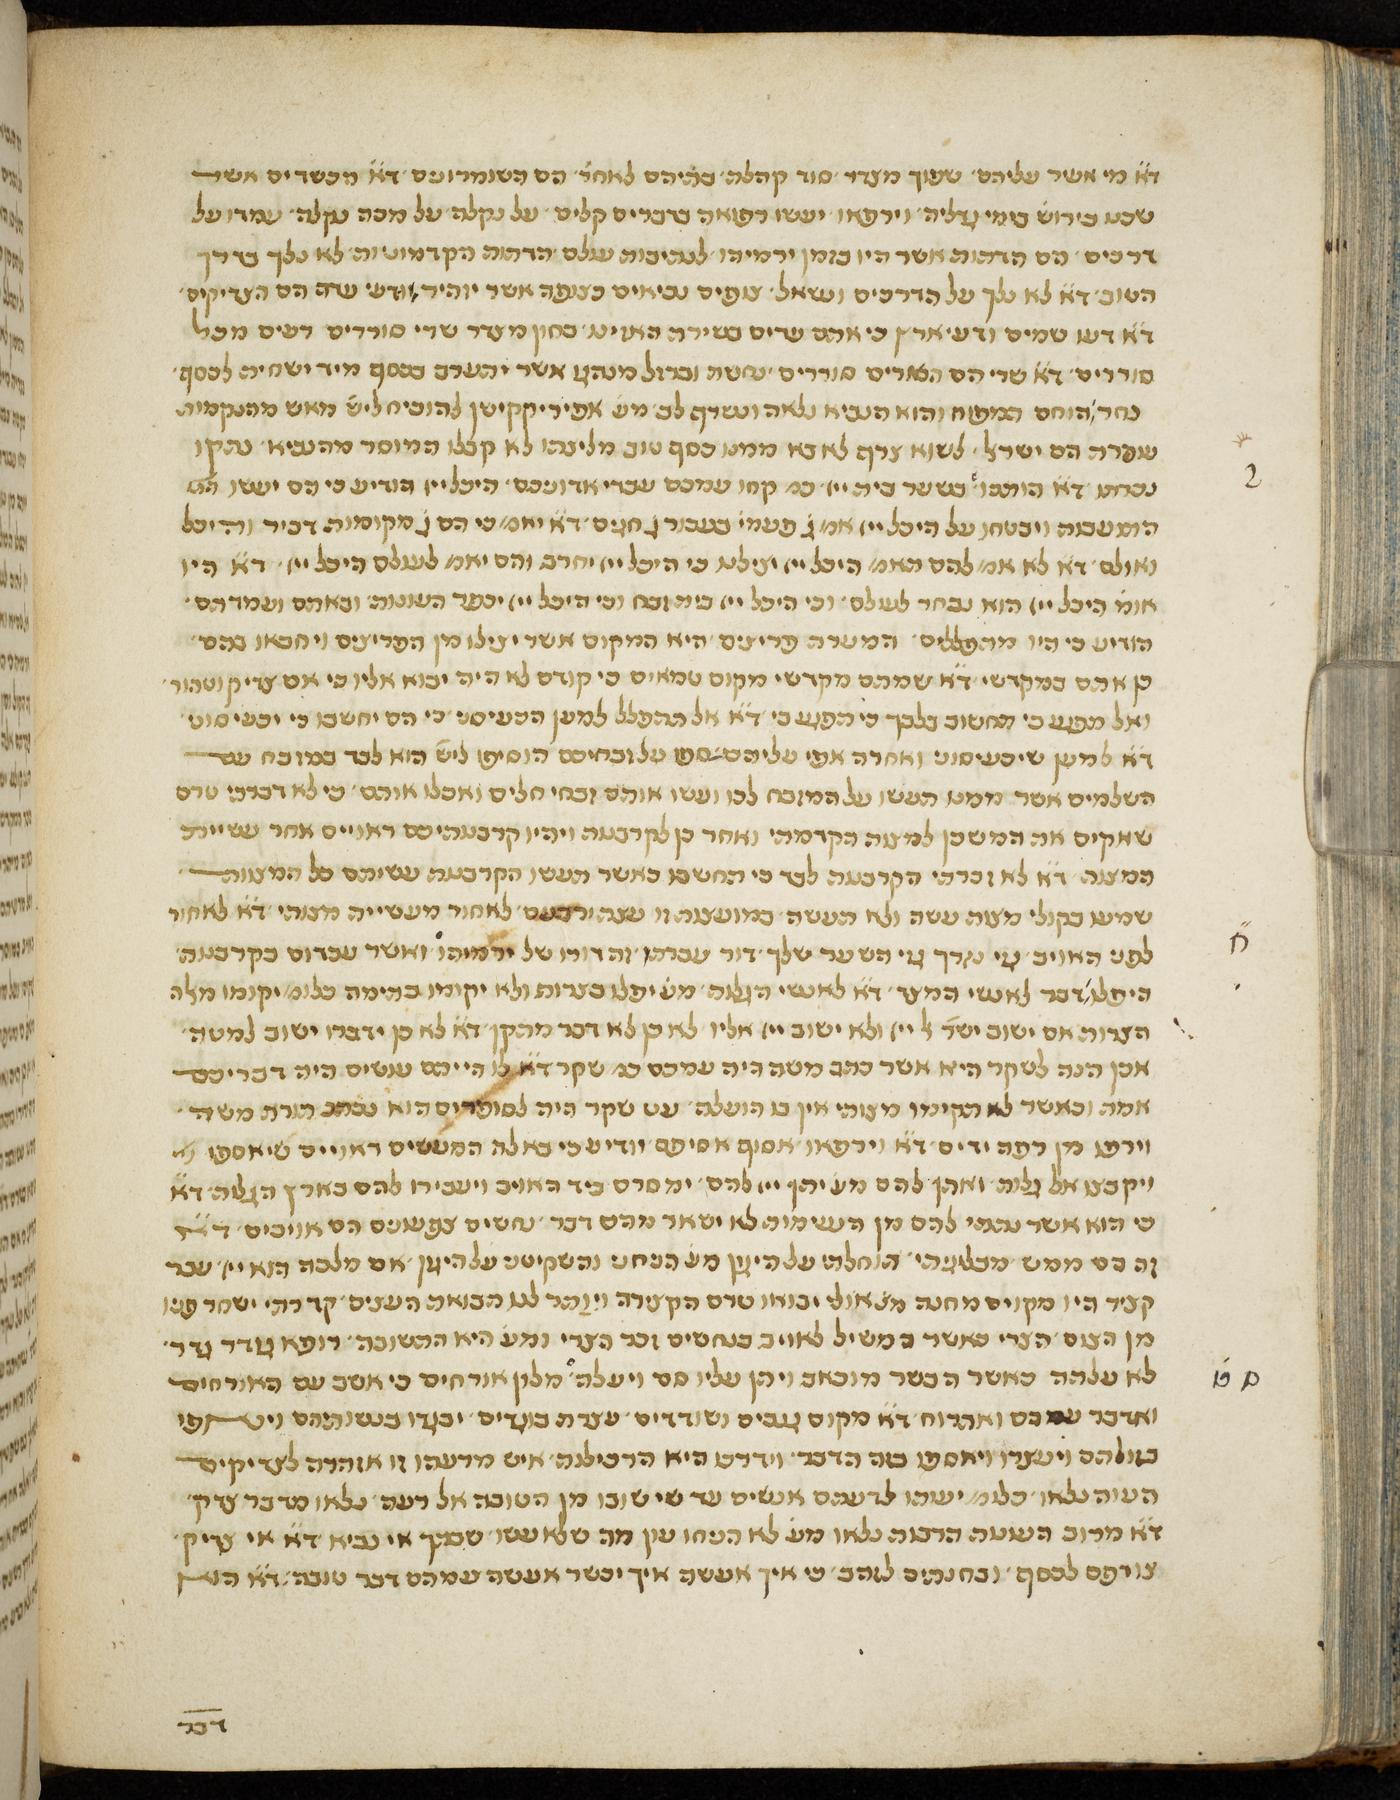 ד״א מי אשר עליהם שפוך מצדר סוד קהלה בתיהם לאחר הם השומרונים ד״א הכשדים אשר
שבט בירוש בימי גדליה וירפאו יעשו רפואה בדברים קלים על נקלה על מכה נקלה עמדו על
דרכים הם הדתות אשר היו בזמן ירמיהו לנתיבות עולם הדתות הקדמוניות לא נלך בדרך
הטוב ד״א לא נלך על הדרכים ונשאל צופים נביאים כצופה אשר יזהיר ודעי עדה הם הצדיקים
ד״א דעו שמים ודעי ארץ כי אתם עדים בשירת האזינו בחון מצדר שרי סוררים רעים מכל
סוררים ד״א שרי הם השרים סוררים נחשת וברזל מנהג אשר יתערב בכסף מיד ישחית לכסף
נחר הוחם המפוח והוא הנביא נלאה ונשרף לב להוכיח ליש מאש מהנקמות
עופרת הם ישראל לשוא צרף לא בא ממנו כסף טוב מליצתו לא קבלו המוסר מהנביא נתקו
נכרתו ד״א הותכו בשער בית ייי קחו עמכם עבדי אדוניכם היכל ייי הודיע כי הם יעשו
התשובה ויבטחו על היכל ייי אמ׳ ג׳ פעמי׳ בעבור ג׳ חגים ד״א יאמ׳ כי הם ג׳ מקומות דביר והיכל
ואולם ד״א לא אמ׳ להם האמ׳ היכל ייי יצילנו כי היכל ייי יחרב והם יאמ׳ לעולם היכל ייי ד״א היו
אומ׳ היכל ייי הוא נבחר לעולם וכי היכל ייי בית זבח וכי היכל ייי יכפר העונות ובאתם ועמדתם
הודיע כי היו מתפללים המערת פריצים היא המקום אשר יצילו מן הפריצים ויחבאו בהם
כן אתם במקדשי ד״א שמתם מקדשי מקום טמאים כי קודם לא היה יבוא אליו כי אם צדיק וטהור
ואל תפגע בי תחשוב בלבך כי תפגע בי ד״א אל תתפלל למען הכעיסני כי הם יחשבו כי יכעיסוני
ד״א למען שיכעיסוני ואחרה אפי עליהם ספו על זבחיכם הוסיפו ליש הוא לבד במזבח עם
השלמים אשר ממנו תעשו על המזבח לכו ועשו אותם זבחי חולים ואכלו אותם כי לא דברתי טרם
שאקים את המשכן למצות הקדמתי ואחר כן לקרבנות ויהיו קרבנותיכם ראויים אחר עשיית
המצות ד״א לא זכרתי הקרבנות לבד כי תחשבו כאשר תעשו הקרבנות עשיתם כל המצות
שמעו בקולי מצות עשה ולא תעשה במועצות זו עצה ורבעם לאחור מעשיית מצותי ד״א לאחור
לפני האויב גזי נזרך גזי השער שלך דור עברתו זה דורו של ירמיהו ואשר עבדום בקרבנות
היפלו דבר לאנשי המצ׳ ד״א לאנשי הגלות יפלו בצרות ולא יקומו בתימה כלומ׳ יקומו מאלה
הצרות אם ישוב ישר׳ ל ייי ולא ישוב ייי אליו לא כן לא דבר מתקן ד״א לא כן ידברו ישוב למטה
אכן הנה לשקר היא אשר כתב משה היה עמכם שקר ד״א לו הייתם עושים היה דבריכם
אמת וכאשר לא הקימו מצותי אין בו תועלת עט שקר היה לסופרים הוא נכתב תורת משה
וירפו מן רפה ידים ד״א וירפאו אסוף אסיפם יודיע כי באלה המעשים ראויים שיאספו
ויקבצו אל גלות ואתן להם יתן ייי להם ימסרם ביד האויב ויעבירו להם בארץ הגלות ד״א
כי הוא אשר נתתי להם מן הנשמות לא ישאר מהם דבר נחשים צפעונים הם אויבים ד״א
זה בם ממש מבליגיתי תוחלתי על היגון הנחני והשקיטני על היגון אם מלכה הוא ייי עבר
קציר היו מקוים מחנה יבואו טרם הקצירה ויותר לנו תבואת הענים קדרתי ישחר פניו
מן הצום הצרי כאשר המשיל לאויב בנחשים זכר הצרי היא התשובה רופא גודר גדר
לא עלתה כאשר הבשר מוכאב ויתן עליו סם ויעלה מלון אורחים כי אשב עם האורחים
ואדבר עמכם ואתרוח ד״א מקום גנבים ושודדים עצרת בוגדים יבגדו בנשותיהם
בזולתם ויעצרו ויאספו בזה הדבר וידרכו היא הרכילות איש מרעהו זו אזהרה לצדיקים
העוה נלאו כלומ׳ יעותו לדעתם אנשים עד שישובו מן הטובה אל רעה נלאו מדבר צדק
ד״א מרוב העונות הרבות נלאו לא הניחו עון מה שלא עשו שבתך אי נביא ד״א אי צדיק
צורפם לכסף ובחנתים לזהב כי איך אעשה איך יכשר אעשה עמהם דבר טובה ד״א
דבר
ז
ח
ט